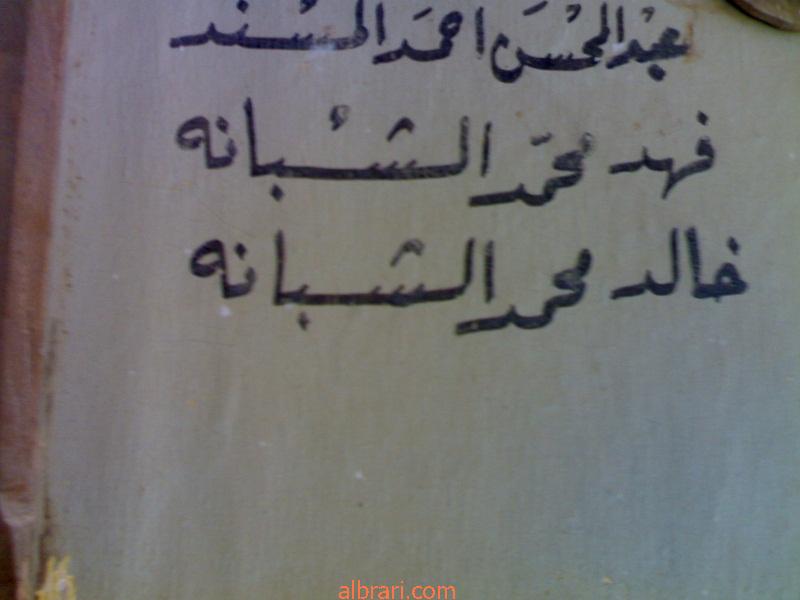 عبدالمحسن احمد المسند
فهد محمد الشبانه
خالد محمد الشبانه
albrari.com